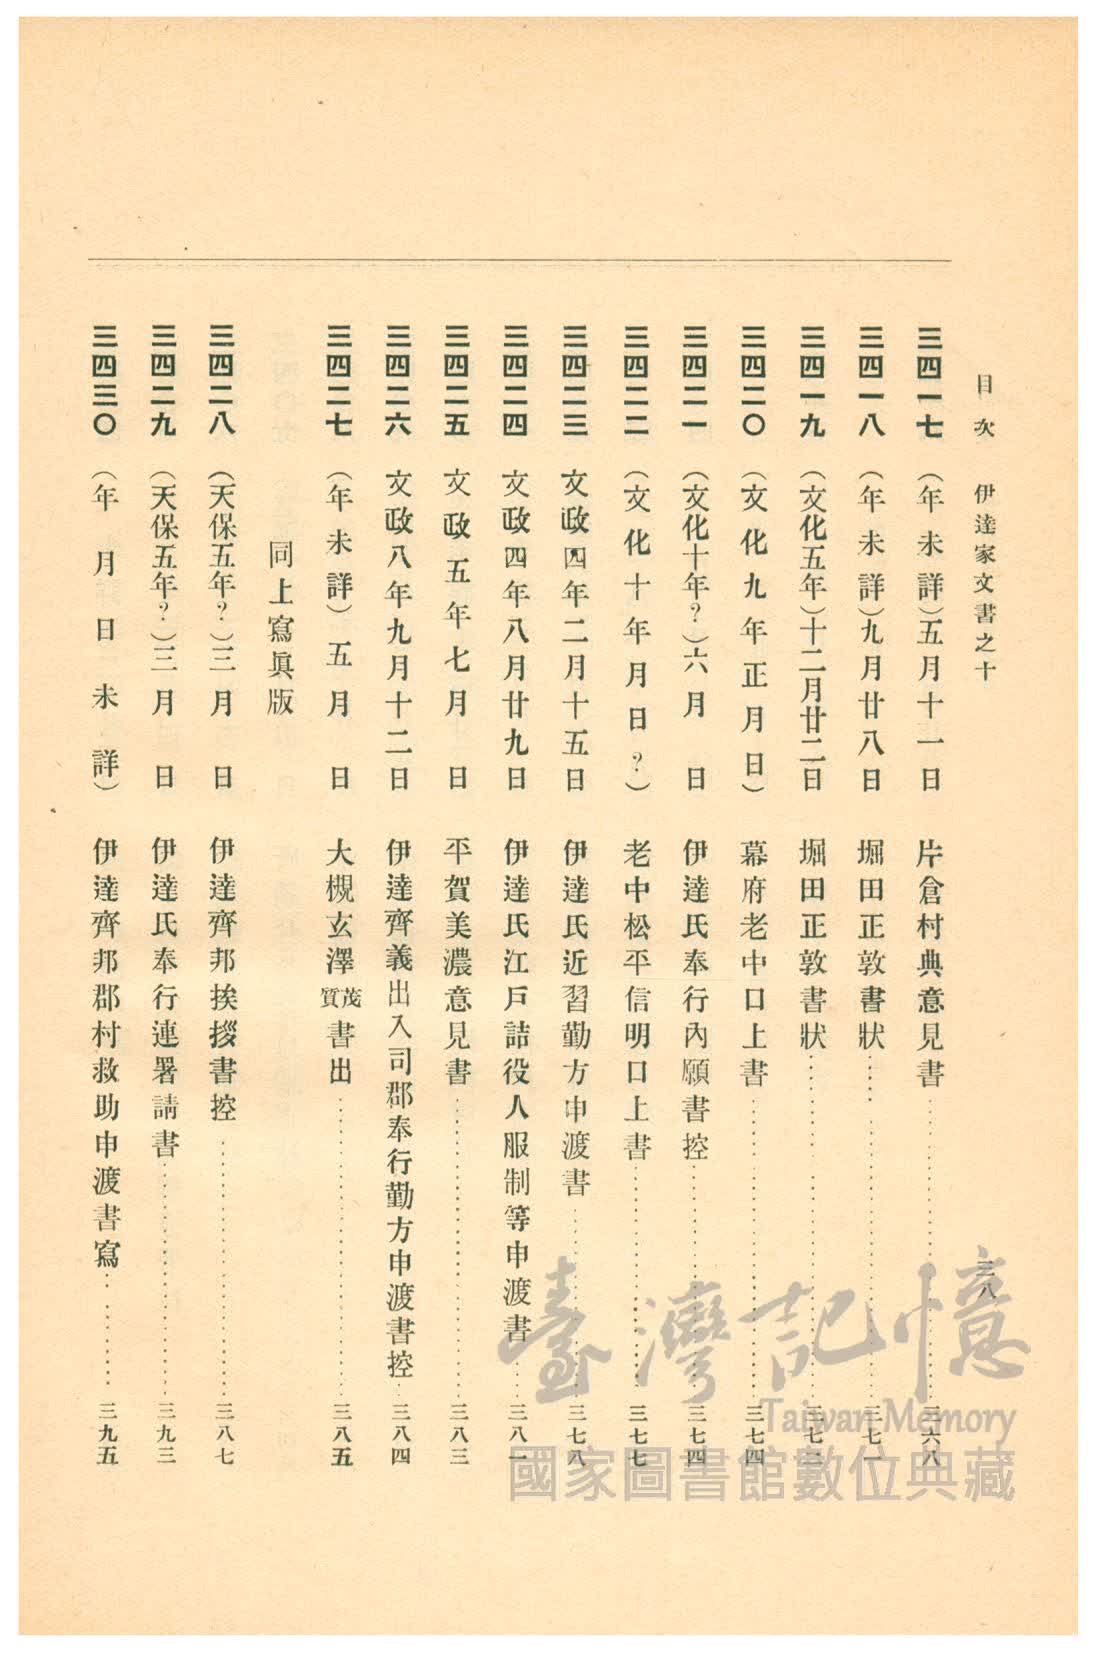 目次　伊達家文書之十　三八
三四一七　(年未詳)五月十一日　片倉村典意見書……三六八
三四一八　(年未詳)九月廿八日　堀田正敦書狀……三七一
三四一九　(文化五年)十二月廿二日　堀田正敦書狀……三七三
三四二〇　(文化九年正月日)　幕府老中口上書……三七四
三四二一　(文化十年?)六月　日　伊達氏奉行內願書控……三七四
三四二二　(文化十年月日?)　老中松平信明口上書……三七七
三四二三　文政四年二月十五日　伊達氏近習勤方申渡書……三七八
三四二四　文政四年八月廿九日　伊達氏江戶詰役人服制等申渡書……三八一
三四二五　文政五年七月　日　平賀美濃意見書……三八三
三四二六　文政八年九月十二日　伊達齊義出入司郡奉行勤方申渡書控……三八四
三四二七　(年未詳)五月　日　大槻玄澤茂質書出……三八五
同上寫眞版
三四二八　(天保五年?)三月　日　伊達齊邦挨拶書控……三八七
三四二九　(天保五年?)三月　日　伊達氏奉行連署請書……三九三
三四三〇　(年月日未詳)　伊達齊邦郡村救助申渡書寫……三九五
臺灣記憶
Taiwan Memory
國家圖書館數位典藏